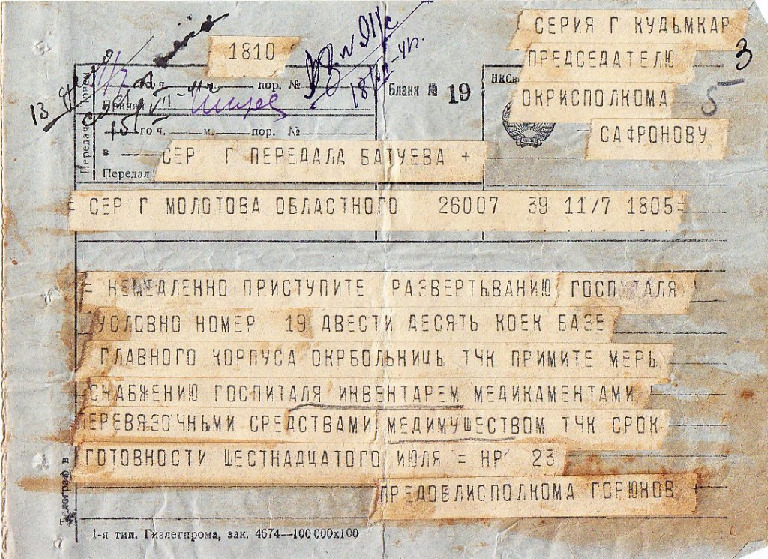 1810
СЕРИЯ Г КУДЫМКАР
ПРЕДСЕДАТЕЛЮ
3
Бланк № 19
ОКРИСПОЛКОМА
5
САФРОНОВУ
пор. №
го ч. м. пор. №
СЕР Г ПЕРЕДАЛА БАТУЕВА +
Передал
= СЕР Г МОЛОТОВА ОБЛАСТНОГО 26007 39 11/7 1805=
= НЕМЕДЛЕННО ПРИСТУПИТЕ РАЗВЕРТЫВАНИЮ ГОСПИТАЛЯ
УСЛОВНО НОМЕР 19 ДВЕСТИ ДЕСЯТЬ КОЕК БАЗЕ
ГЛАВНОГО КОРПУСА ОКРБОЛЬНИЦЫ ТЧК ПРИМИТЕ МЕРЫ
СНАБЖЕНИЮ ГОСПИТАЛЯ ИНВЕНТАРЕМ МЕДИКАМЕНТАМИ
ПЕРЕВЯЗОЧНЫМИ СРЕДСТВАМИ МЕДИМУЩЕСТВОМ ТЧК СРОК
ГОТОВНОСТИ ШЕСТНАДЦАТОГО ИЮЛЯ = НР 23
ПРЕДОБЛИСПОЛКОМА ГОРЮНОВ +
1-я тип. Гизлегпрома, зак. 4674—100 000x100